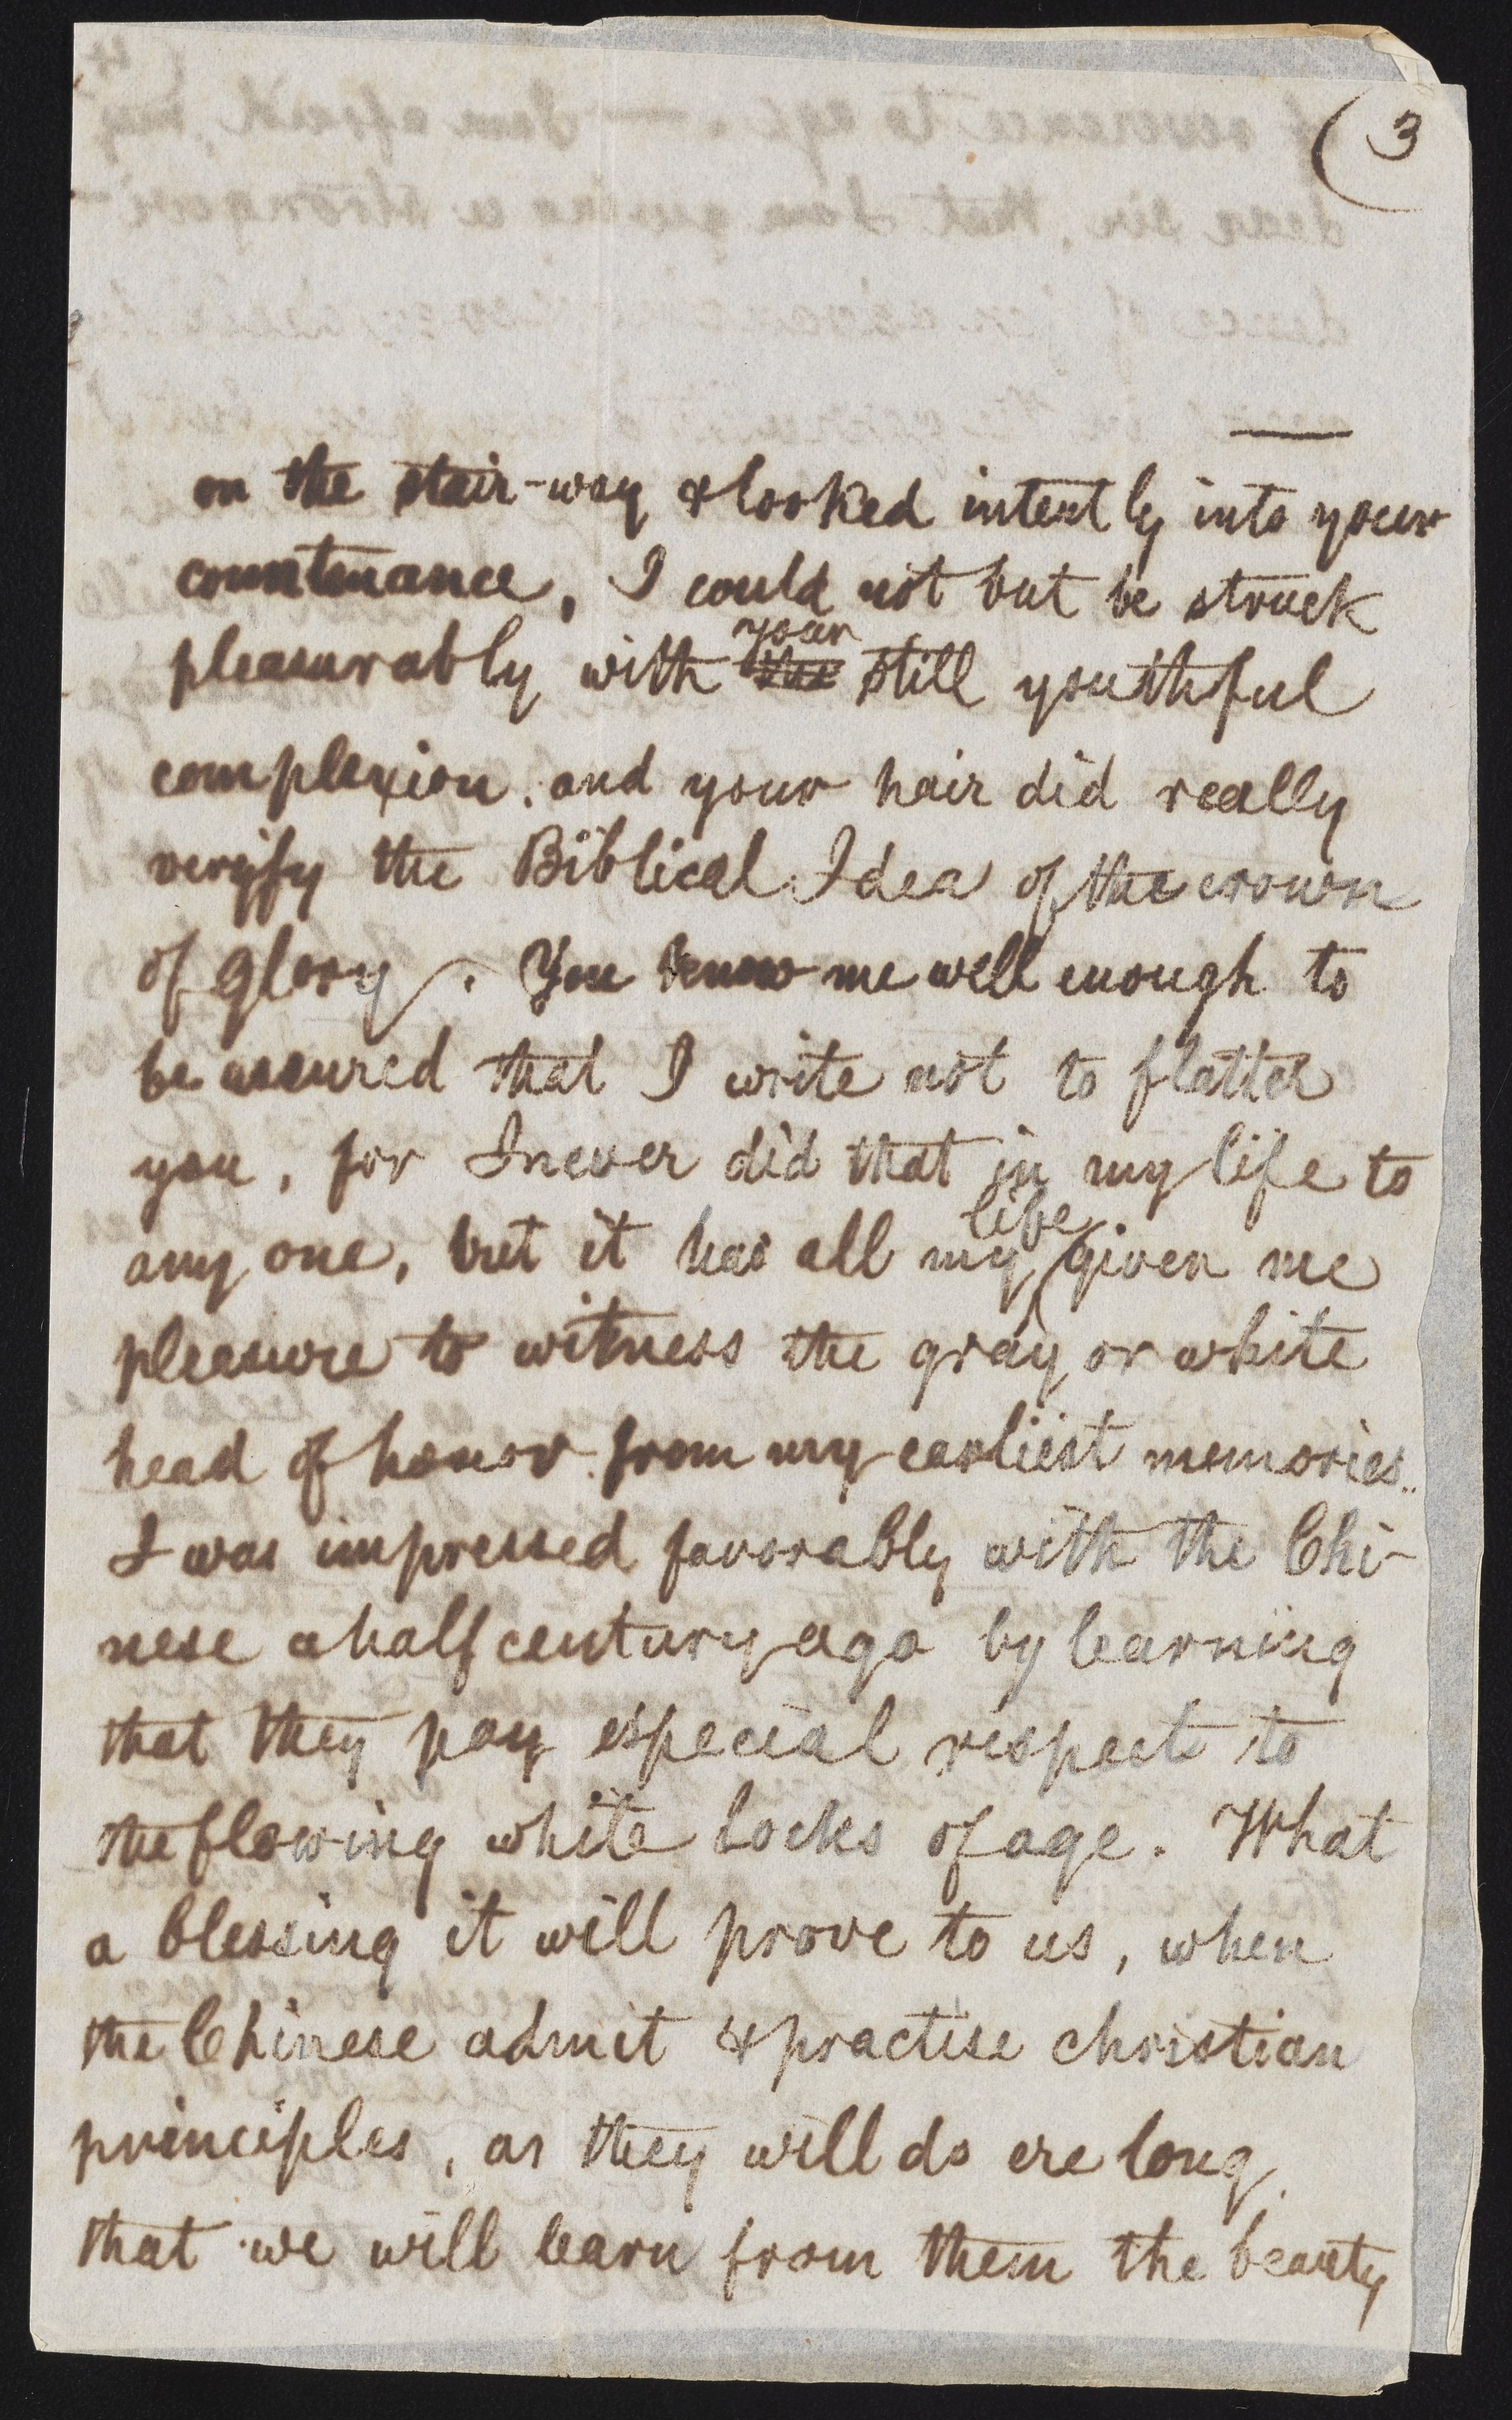 (3
on the stair-way & looked intently into your
countenance, I could not but be struck
pleasurably with your the still youthful
complexion, and your hair did really
verify the Biblical Idea of the crown
of glory. You know me well enough to
be assured that I write not to flatter
you, for I never did that in my life to
any one, but it has all my life given me
pleasure to witness the gray or white
head of honor from my earliest memories..
I was impressed favorably with the Chi-
nese a half century ago by learning
that they pay especial respect to
the flowing white locks of age. What
a blessing it will prove to us, when
the Chinese admit & practise christian
principles, as they will do ere long,
that we will learn from them the beauty